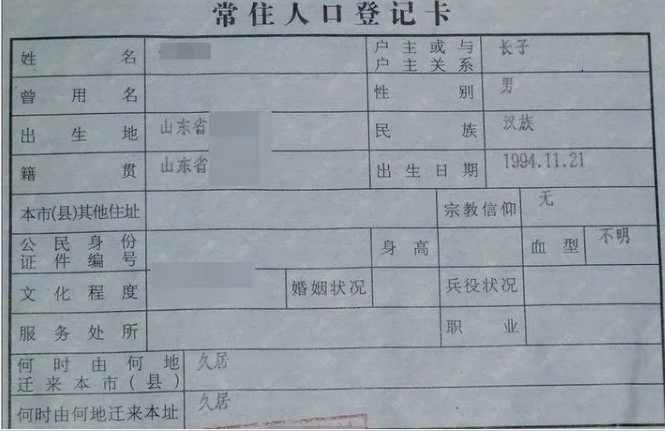 常住人口登记卡
姓名 户主或与户主关系 长子
曾用名 性别 男
出生地 山东省 民族 汉族
籍贯 山东省 出生日期 1994.11.21
本市(县)其他住址 宗教信仰 无
公民身份证件编号 身高 血型 不明
文化程度 婚姻状况 兵役状况
服务处所 职业
何时由何地迁来本市(县) 久居
何时由何地迁来本址 久居